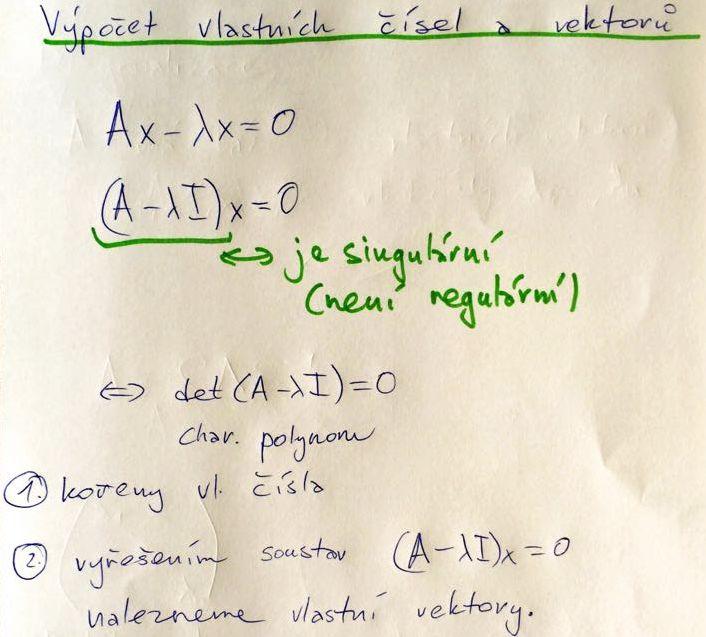 Výpočet vlastních čísel a vektorů
Ax - λx = 0
(A - λI)x = 0
⇔ je singulární
(není regulární)
⇔ det (A - λI) = 0
char. polynom
1. kořeny vl. čísla
2. vyřešením soustav (A - λI)x = 0
nalezneme vlastní vektory.